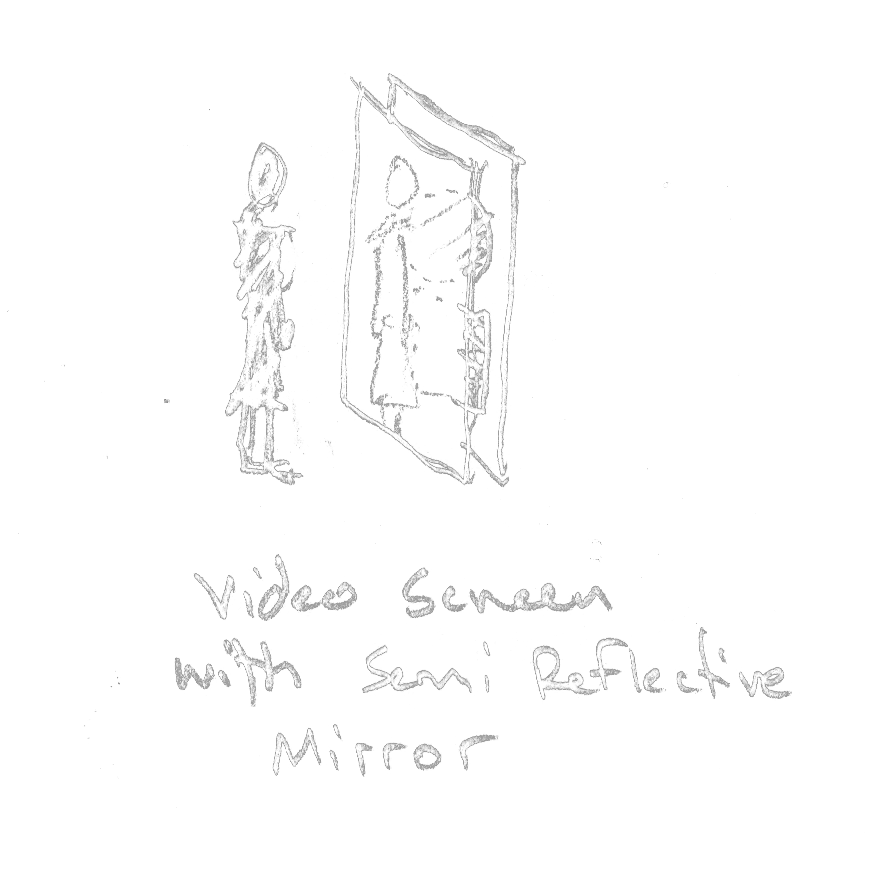 Video Screen
with Semi Reflective
Mirror